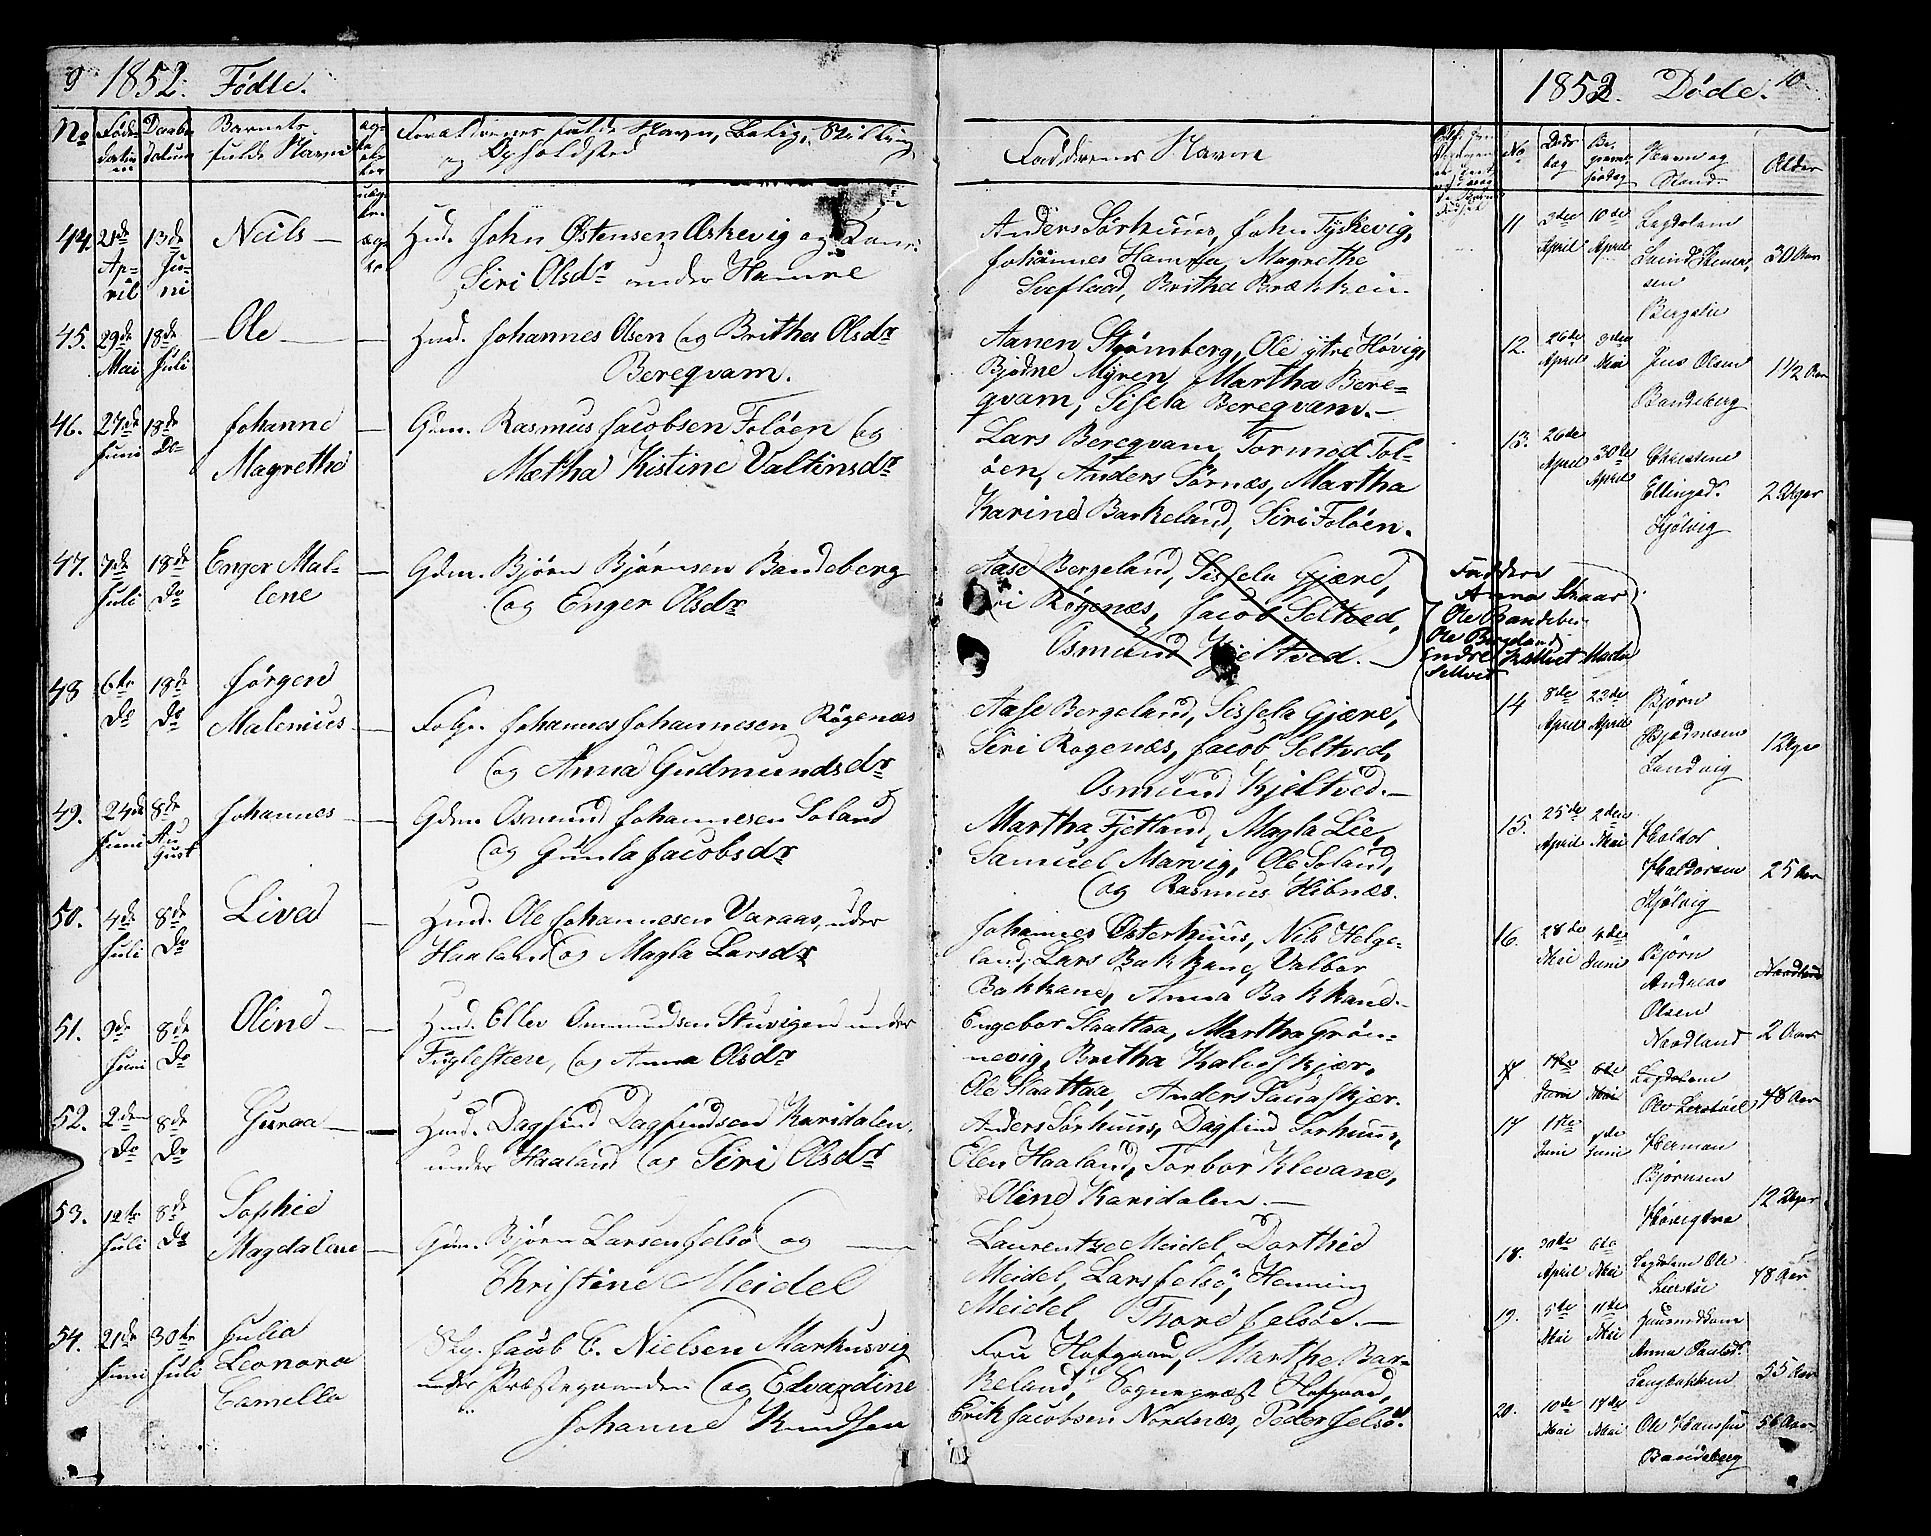 9 1852. Födte.
No Føds- datum Daabs datum Barnets fulde Navn Forældrenes fulde Navn, Stilling og Opholdsted
44. 21de April 13de Juni Neils — Hmd. John Østensen Askevig og
Siri Olsdr under Hamre
45. 29de Mai 18de Juli Ole — Hmd. Johannes Olsen og Britha Olsdr
Bereqvam.
46. 27de Juni 18de Do Johanne Magrethe — Gdm. Rasmus Jacobsen Foløen og
Mætha Kistine Valtinsdr
47. 7de Juli 18de Do Enger Malene — Gdm. Bjørn Bjørnsen Bandeberg
og Enger Olsdr
48 6te Do 18de Do Jørgen Malenius — Johannes Johannesen Røgenæs
og Anna Gudmundsdr
49. 24de Juni 8de August Johannes — Gdm Osmund Johannesen Soland
og Gunla Jacobsdr
50. 4de Juli 8de Do Liva — Hmd. Ole Johannesen Varaas, under
Haaland og Magla Larsdr
51. 9de Juni 8de Do Oline — Hmd. Ellev Ommundsen Stuvigen under
Fuglesteen, og Anna Olsdr
52. 2den Do 8de Do Guraa — Hmd. Dagfind Dagfindsen Karidalen,
under Haaland og Siri Olsdr
53. 12te Juli 8de Do Sophie Magdalene — Gdm. Bjørn Larsen Jelsø og
Christine Meidel
54. 21de Juni 30te Juli Julia Leonora Camella Jacob C. Nielsen Markusvig
under Præstegaarden og Edvardine
Johanne Knudsen
Faddernes Navne
Anders Sørhuus, John Tyskevig,
Johannes Hamre, Magrethe
Britha Brækken.
Aanen Strømberg, Ole ytre Høvig,
Bjødne Myren, Martha Bere-
qvam, Sisela Bereqvam. —
Lars Bereqvam, Tormod Fol-
øen, Anders Sørnæs, Martha
Karine Barkeland, Siri Foløen.
Aase Bergeland, Sissela Gjære,
Siri Røgenæs, Jacob Seltved,
Osmund Kjeltved. —
Faddere
Anna Skaar
Ole Bandeberg
Ole Bergeland
Endre
Seltved
Aase Bergeland, Sissela Gjære,
Siri Rogenæs, Jacob Seltved,
Osmund Kjeltved. —
Martha Fjetland, Magla Lie,
Samuel Marvig, Ole Soland,
og Rasmus Hibnæs.
Johannes Østerhuus, Nils Helge-
land, Lars Bakkane, Valbor
Bakkane, Anna Bakkane. —
Engebor Slaattaa, Martha Grøn-
nevig, Britha
Ole Slaattaa, Anders
Anders Sørhuus, Dagfind Sørhuus,
Elen Haaland, Torbor Klevane,
Oline Karidalen. —
Laurentze Meidel, Dorthie
Meidel, Lars Jelsø, Henning
Meidel Thore Jelsøe. —
Fru Hofgaard, Marthe Bar-
keland, Sognepræst Hofgaard,
Erik Jacobsen Nordnæs, Peder Jelsø.
1852. Døde. 10
No Døds dag Navn og Stand. Alder
11 3die April 10de April Legdelem 30 Aar
12. 26de April 3die Mai Jens Olsen Bandeberg 1 1/2 Aar
13. 26de April 30te April Christine Ellingsd. Hjølvig 2 Uger
14 8de April 23de April Bjørn Landvig 12 Uger
15. 25de April 2den Mai Haldor Haldorsen Hjølvig 25 Aar
16. 28de Mai 4de Juni Bjørn Andreas Olsen Naadland 2 Aar
17 1ste Juni 6te Mai Legdelem Ole 78 Aar
17 1ste Juni 7de Juni Herman Bjørnsen 12 Uger
18. 30te April 6te Mai Legdelem Ole 78 Aar
19. 5te Mai 11te Mai Anna Paulsdr. Langbakken 55 Aar
20. 10de Mai 17de Mai Ole Hansen Bandeberg 56 Aar